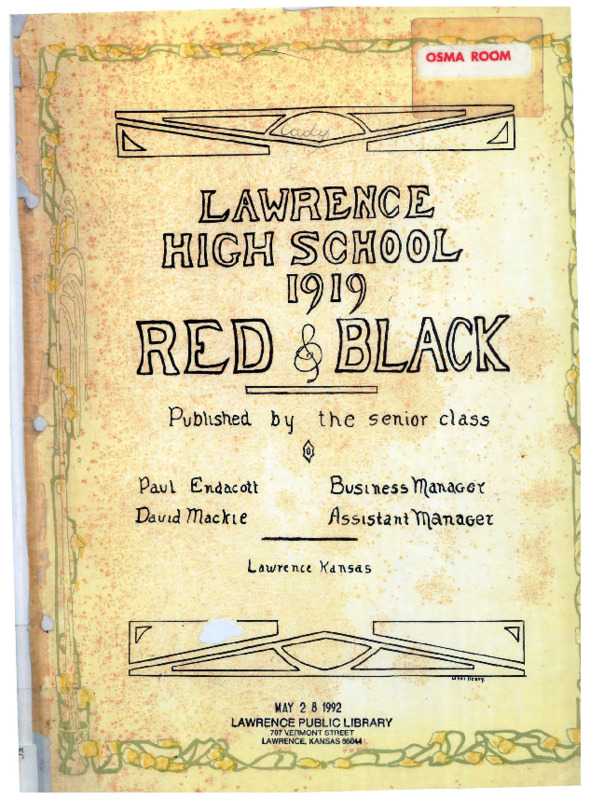 OSMA ROOM
Cady
LAWRENCE
HIGH SCHOOL
1919
RED & BLACK
Published by the senior class
Paul Endacott Business Manager
David Mackie Assistant Manager
Lawrence Kansas
MAY 28 1992
LAWRENCE PUBLIC LIBRARY
707 VERMONT STREET
LAWRENCE, KANSAS 66044